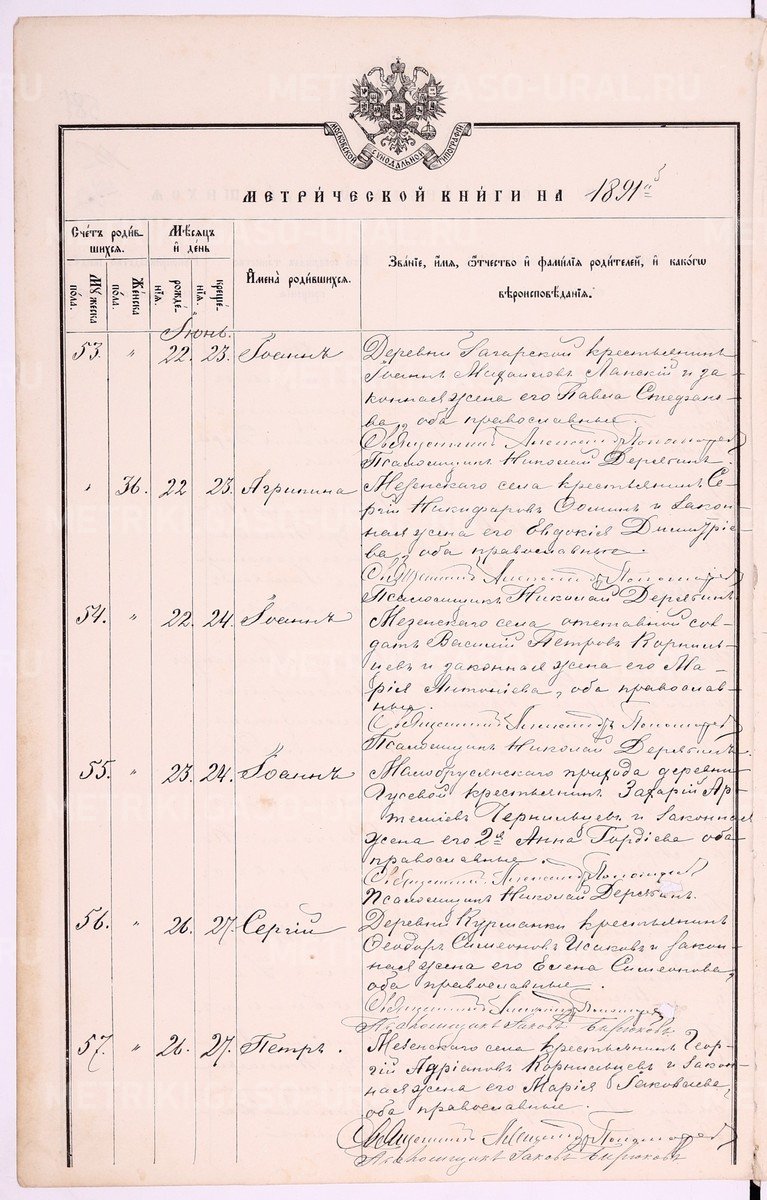 МОСКОВСКОЙ СѴНОДАЛЬНОЙ ТИПОГРАФІИ
МЕТРИЧЕСКОЙ КНИГИ НА 1891й
Счетъ родив-
шихся.
Мѣсяцъ
и день
Имена родившихся.
Званіе, имя, отчество и фамилія родителей, и какогѡ
вѣроисповѣданія.
Мужеска
пола.
Женска
пола.
рожде-
нія.
креще-
нія.
Іюнь.
53. " 22. 23. Іоаннъ Деревни Гагарской крестьянинъ
Іоаннъ Михаиловъ Лапскій и за-
конная жена его Павла Стефано-
ва, оба православные.
Священникъ Александръ Пономаревъ
Псаломщикъ Николай Дерягинъ.
" 36. 22 23. Агрипина Мезенскаго села крестьянинъ Се-
ргій Никифоровъ Ѳоминъ и закон-
ная жена его Евдокія Димитріе-
ва, оба православные.
Священникъ Александръ Пономаревъ
Псаломщикъ Николай Дерягинъ.
54. " 22. 24. Іоаннъ Мезенскаго села отставной сол-
датъ Василій Петровъ Корниль-
цевъ и законная жена его Ма-
рія Антоніева, оба православ-
ные.
Священникъ Александръ Пономаревъ
Псаломщикъ Николай Дерягинъ.
55. " 23. 24. Іоаннъ Малобрусянскаго прихода деревни
Гусевой крестьянинъ Захарій Ар-
теміевъ Чернильцевъ и законная
жена его 2я Анна Гордіева оба
православные.
Священникъ Александръ Пономаревъ
Псаломщикъ Николай Дерягинъ.
56. " 26. 27. Сергій Деревни Курманки крестьянинъ
Ѳеодоръ Симеоновъ Исаковъ и закон-
ная жена его Елена Симеонова,
оба православные.
Священникъ Александръ Пономаревъ
Псаломщикъ Іаковъ Бирюковъ
57. " 26. 27. Петръ. Мезенскаго села крестьянинъ Геор-
гій Адріановъ Корнильцевъ и закон-
ная жена его Марія Іаковлева,
оба православные.
Священникъ Александръ Пономаревъ
Псаломщикъ Іаковъ Бирюковъ